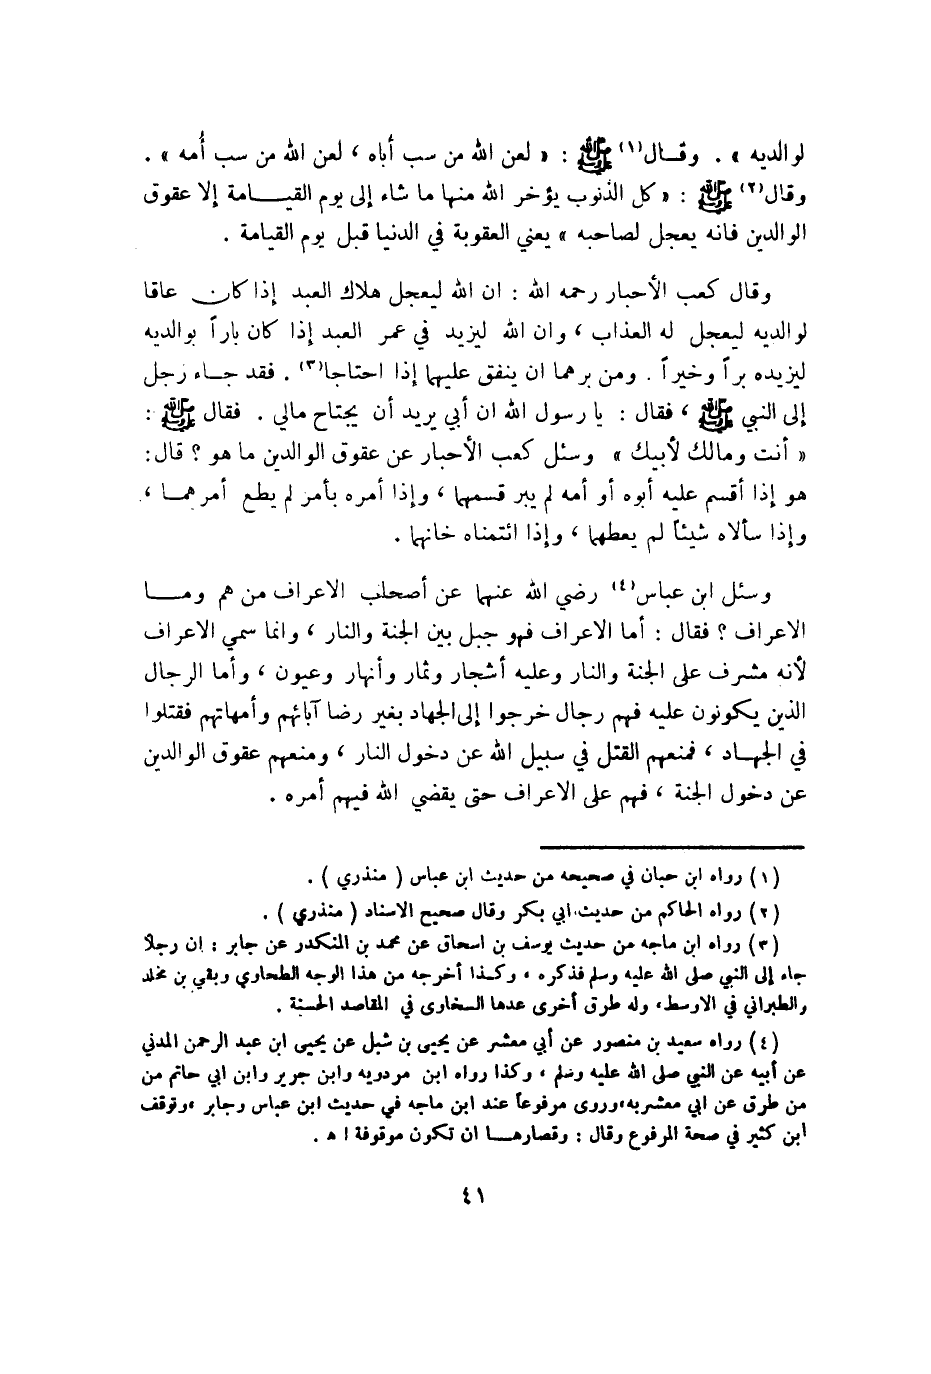 لوالديه » . وقـال(١) ﷺ : « لعن الله من سب أباه ، لعن الله من سب أُمه » .
وقال(٢) ﷺ : « كل الذنوب يؤخر الله منها ما شاء إلى يوم القيـــامة إلا عقوق
الوالدين فانه يعجل لصاحبه » يعني العقوبة في الدنيا قبل يوم القيامة .
وقال كعب الأحبار رحمه الله : ان الله ليعجل هلاك العبد إذا كان عاقا
لوالديه ليعجل له العذاب ، وان الله ليزيد في عمر العبد إذا كان باراً بوالديه
ليزيده براً وخيراً . ومن برهما ان ينفق عليهما إذا احتاجا(٣) . فقد جـاء رجل
إلى النبي ﷺ ، فقال : يا رسول الله ان أبي يريد أن يجتاح مالي . فقال ﷺ :
« أنت ومالك لأبيك » وسئل كعب الأحبار عن عقوق الوالدين ما هو ؟ قال :
هو إذا أقسم عليه أبوه أو أمه لم يبر قسمهما ، وإذا أمره بأمر لم يطع أمرهمـا ،
وإذا سألاه شيئاً لم يعطهما ، وإذا ائتمناه خانهما .
وسئل ابن عباس(٤) رضي الله عنهما عن أصحاب الاعراف من هم ومــا
الاعراف ؟ فقال : أما الاعراف فهو جبل بين الجنة والنار ، وانما سمي الاعراف
لأنه مشرف على الجنة والنار وعليه أشجار وثمار وأنهار وعيون ، وأما الرجال
الذين يكونون عليه فهم رجال خرجوا إلى الجهاد بغير رضا آبائهم وأمهاتهم فقتلوا
في الجهـاد ، فمنعهم القتل في سبيل الله عن دخول النار ، ومنعهم عقوق الوالدين
عن دخول الجنة ، فهم على الاعراف حتى يقضي الله فيهم أمره .
(١) رواه ابن حبان في صحيحه من حديث ابن عباس ( منذري ) .
(٢) رواه الحاكم من حديث ابي بكر وقال صحيح الاسناد ( منذري ) .
(٣) رواه ابن ماجه من حديث يوسف بن اسحاق عن محمد بن المنكدر عن جابر : إن رجلاً
جاء إلى النبي صلى الله عليه وسلم فذكره ، وكـذا أخرجه من هذا الوجه الطحاوي وبقي بن مخلد
والطبراني في الاوسط، وله طرق أخرى عدها السخاوى في المقاصد الحسنة .
(٤) رواه سعيد بن منصور عن أبي معشر عن يحيى بن شبل عن يحيى ابن عبد الرحمن المدني
عن أبيه عن النبي صلى الله عليه وسلم ، وكذا رواه ابن مردويه وابن جرير وابن ابي حاتم من
من طرق عن ابي معشربه،وروى مرفوعاً عند ابن ماجه في حديث ابن عباس وجابر ،وتوقف
ابن كثير في صحة المرفوع وقال : وقصارهـا ان تكون موقوفة ا ه .
٤١